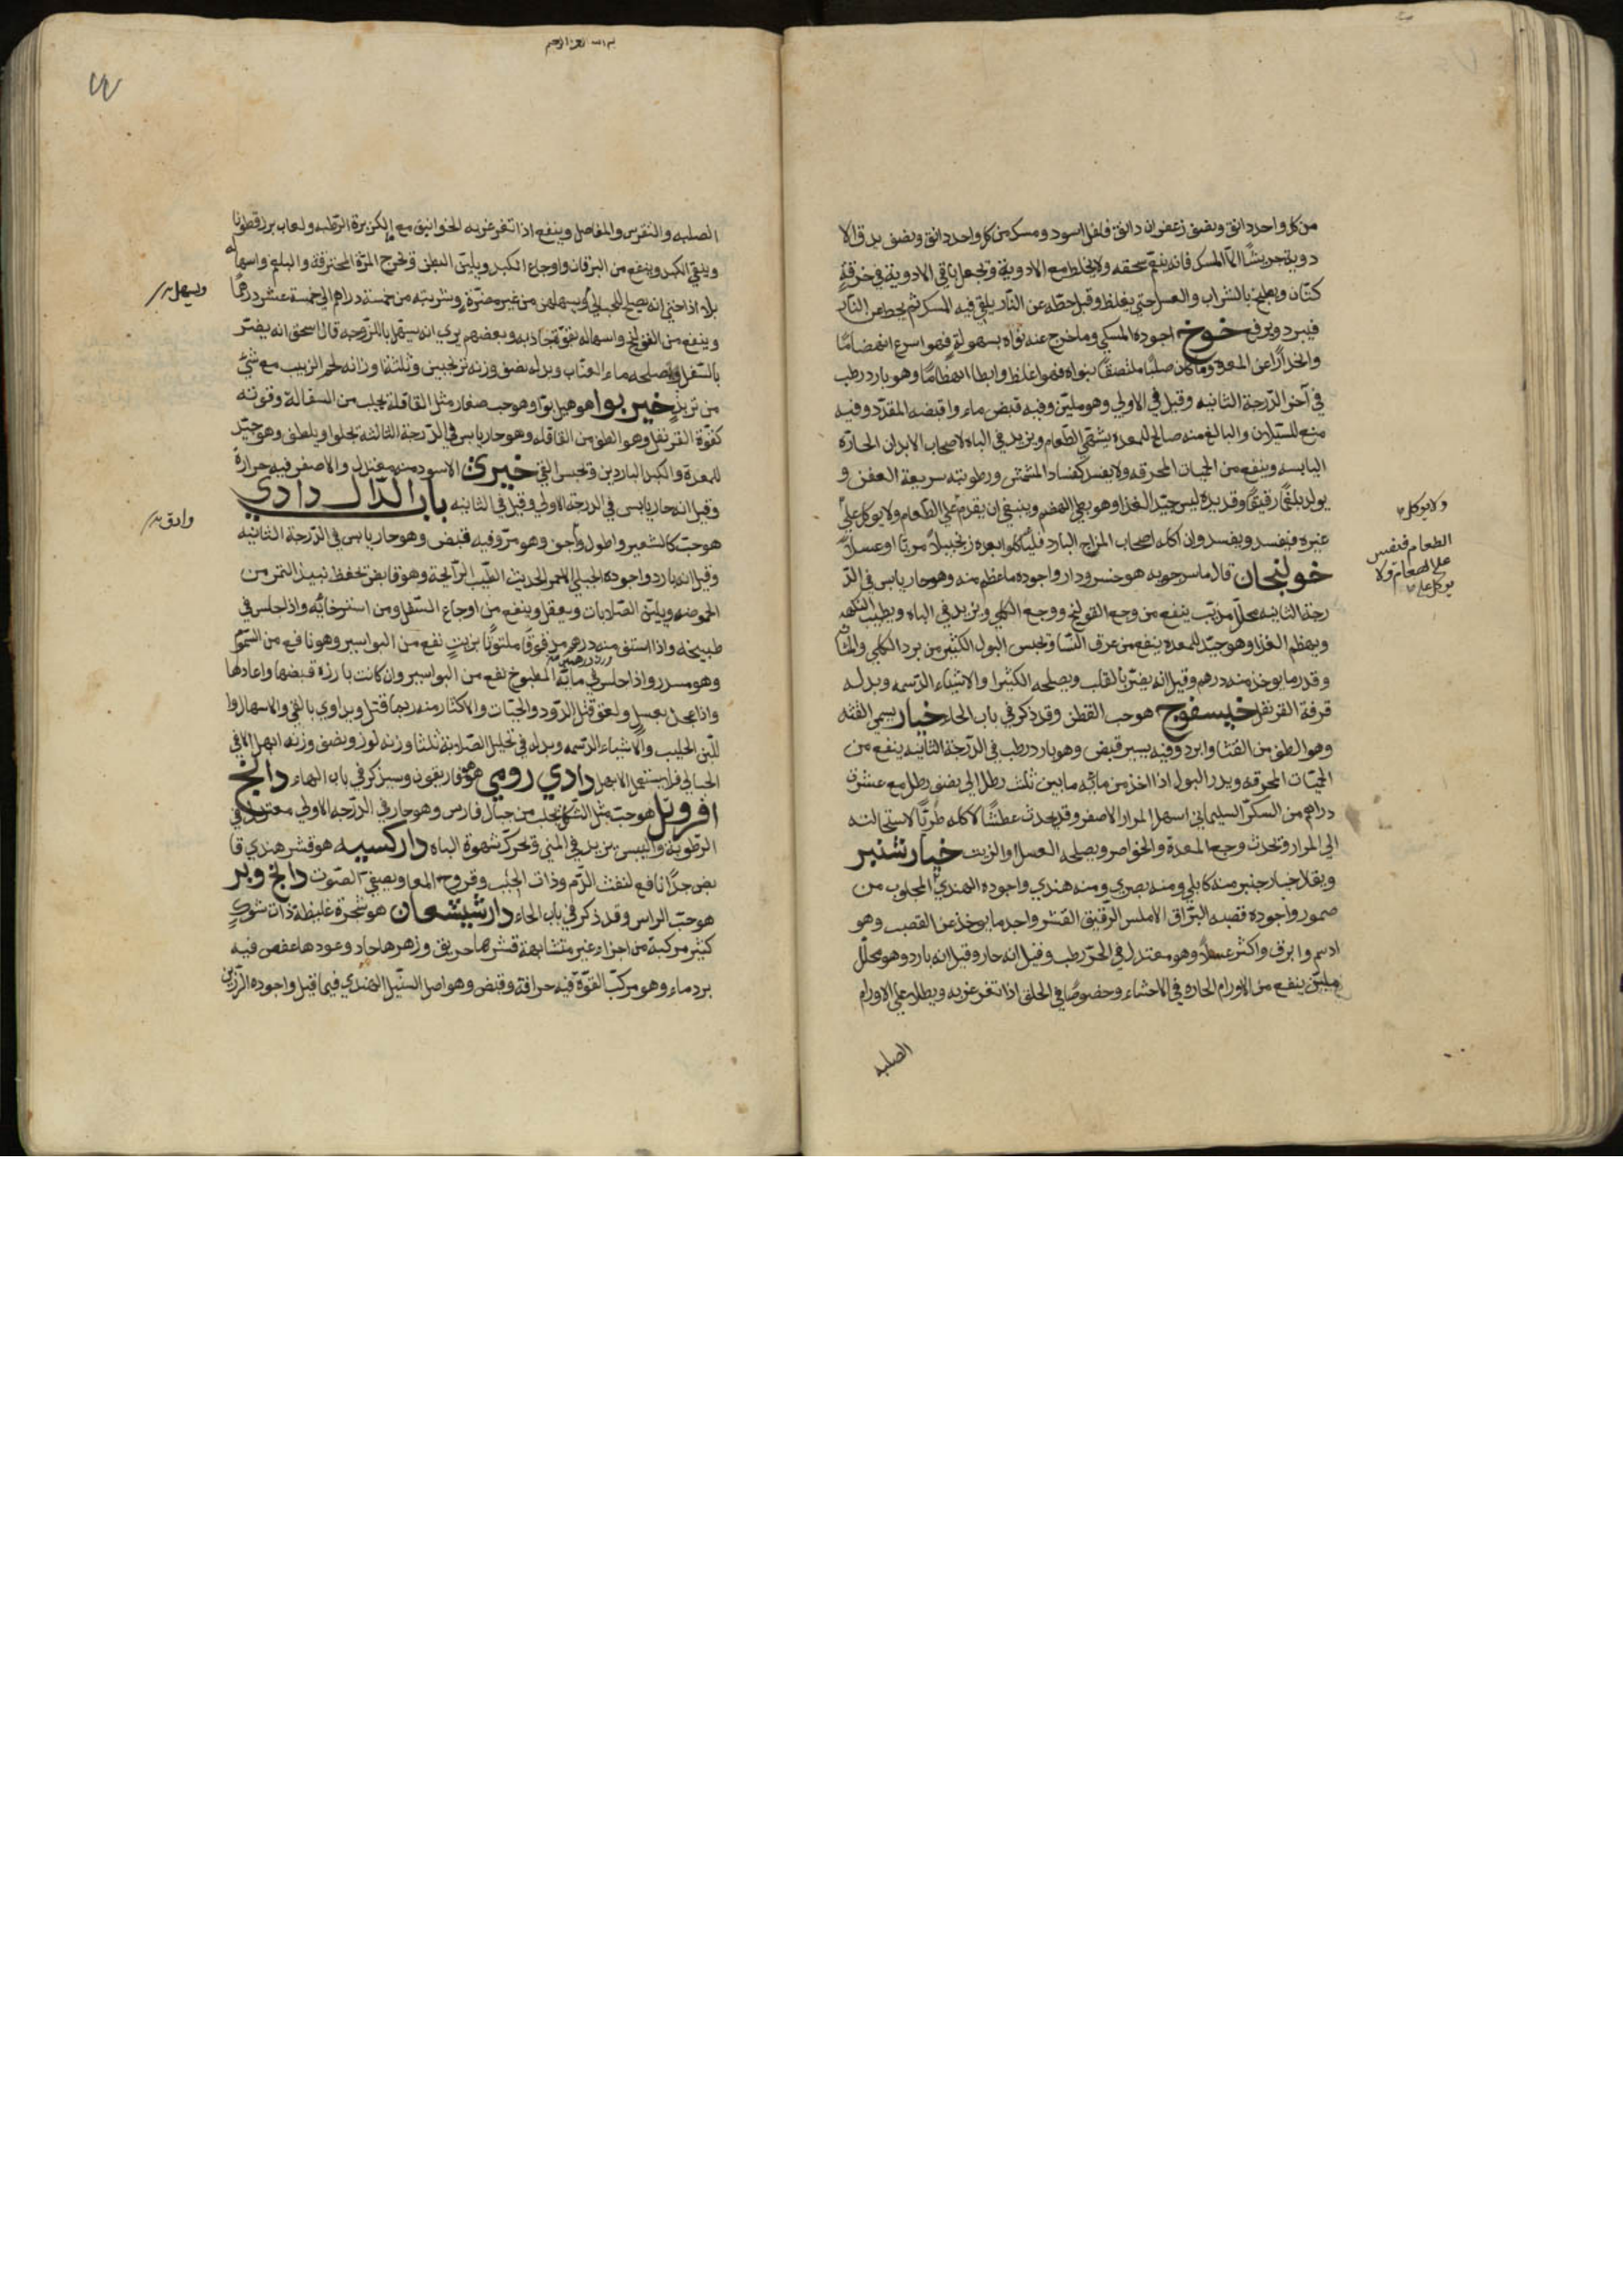 من كل واحد دانق ونصف زعفران دانق فلفل اسود ومسك من كل واحد دانق ونصف يدق الا
دوية جريشًا الّا المسك فانه ينعّم سحقه ولا يخلط مع الادوية وتجعل باقي الادوية في خرقةٍ
كتّان ويطبخ بالشراب والعسل حتي يغلظ وقبل حطّه عن النّار يلقي فيه المسك ثم يحط عن النّار
فيبرد ويرفع خوخ اجوده المسكي وما خرج عنه نواه بسهولةٍ فهو اسرع انهضامًا
وانحدارًا عن المعدة وما كان صلبًا ملتصقًا بنواه فهو اغلظ وابطا انهضامًا وهو بارد رطب
في آخر الدّرجة الثانيه وقيل في الاولي وهو مليّن وفيه قبض ماء واقبضه المقدّد وفيه
منع للسّيلان والبالغ منه صالح للمعدة يشهّي الطّعام ويزيد في الباه لاصحاب الابدان الحارّه
اليابسه وينفع من الحميات المحرقه ولا يفسد كفساد المشمش ورطوبته سريعة العفن و
يولد بلغمًا رقيقًا وقديده ليس جيّد الغذا وهو بطي الهضم وينبغي ان يقدّم علي الطّعام ولا يوكل علي
غيره فيفسد ويفسد وان اكله اصحاب المزاج البارد فلياكلوا بعده زنجبيلاً مربًا او عسلاً
خولنجان قال ماسرجويه هو خسرودار واجوده ما عظم منه وهو حار يابس في الدّ
رجة الثانيه محلّل مذيّب ينفع من وجع القولنج ووجع الكلي ويزيد في الباه ويطيب النكهه
ويهضم الغذا وهو جيّد للمعدة ينفع من عرق النّسا وتحبس البول الكثير من برد الكلي والمثا
وقدر ما يوخذ منه درهم وقيل انه يضرّ بالقلب ويصلحه الكثيرا والاشياء الدّسمه وبدله
قرفة القرنفل خيسفوج هو حب القطن وقد ذكر في باب الحاء خيار يسمي القثه
وهو الطف من القثا وابرد وفيه يسير قبض وهو بارد رطب في الدّرجة الثانيه ينفع من
الحمّيات المحرقه ويدر البول اذا اخذ من مائه ما بين ثلث رطل الي نصف رطل مع عشرة
دراهم من السكّر السليماني اسهل المرار الاصفر وقد يحدث عطشًا لاكله طريًا لاستحالته
الي المرار وتحدث وجع المعدة والخواصر ويصلحه العسل والزبيب خيارشنبر
ويقال خيار جنبر منه كابلي ومنه بصري ومنه هندي واجوده الهندي المجلوب من
صمور واجوده قصبه البرّاق الاملس الرّقيق القشر واجد ما يوخذ عن القصب وهو
ادسم وابرق واكثر عسلاً وهو معتدل في الحرّ رطب وقيل انه حار وقيل انه بارد وهو محلّل
مليّن ينفع من الاورام الحاره في الاحشاء وخصوصًا في الحلق اذا تغرغر به ويطلا علي الاورام
الصلبه
ولا يوكل
الطعام فيفسد
علي الطعام ولا
يوكل علي
بسم الله الرحمن الرحيم
الصلبه والنقرس والمفاصل وينفع اذا تغرغر به الخوانيق مع الكزبرة الرّطبه ولعاب بزرقطونا
وينقي الكبد وينفع من اليرقان واوجاع الكبد ويليّن البطن وتخرج المرّة المحترقة والبلغم واسهاله
بلا اذا حتي انه يصلح للحبالي ويسهلهن من غير مضرّةٍ وشربته من خمسة دراهم الي خمسة عشر درهمًا
وينفع من القولنج واسهاله بقوّة جاذبه وبعضهم يري انه يسهل باللزوجه قال اسحق انه يضرّ
بالسّفل ويصلحه ماء العنّاب وبدله نصف وزنه ترنجبين وثلثة اوزانه لحم الزبيب مع شئ
من تربدٍ خيربوا هو هيل بوّا وهو حب صغار مثل القاقلة تجلب من السفالة وقوته
كقوّة القرنفل وهو الطف من القاقله وهو حار يابس في الدّرجة الثالثة تجلوا ويلطف وهو جيّد
للمعدة والكبد الباردين وتحبس القئ خيرى الاسود منه معتدل والاصفر فيه حرارة
وقيل انه حار يابس في الدرجة الاولي وقيل في الثانيه باب الدّال دادي
هو حبّ كالشعير واطول وادق وهو مرّ وفيه قبض وهو حار يابس في الدّرجة الثانيه
وقيل انه بارد واجوده الجبلي الاحمر الحديث الطّيب الرّائحة وهو قابض تحفظ نبيذ التمر من
الحموضه ويليّن الصّلابات ويعقل وينفع من اوجاع السّفل ومن استرخائه واذا جلس في
طبيخه واذا استفّ منه درهم مدقوقًا ملتوتًا بزيتٍ نفع من البواسير وهو نافع من السّموم
وهو مسدر واذا جلس في مائه المطبوخ نفع من البواسير وان كانت بارزه قبضها واعادها
واذا عجن بعسلٍ ولعق قتل الدّود والحيّات والاكثار منه ربما قتل ويداوي بالقئ والاسهال وا
للّبن الحليب والاشياء الدّسمه وبدله في تحليل الصّلابة ثلثا وزنه لوز ونصف وزنه ابهل الا في
الحبالي فلا يستعمل الابهل دادي رومي هو هوفاريقون وسيذكر في باب الهاء دانج
افروتك هو حبّ مثل الشكل تجلب من جبال فارس وهو حار في الدّرجه الاولي معتدل في
الرّطوبة واليبس يزيد في المني وتحرّك شهوة الباه داركسيه هو قشر هندي قا
بض جدًا نافع لنفث الدّم وذات الجنب وقروح المعا ويصفّي الصّوت دانج وبر
هو حبّ الراس وقد ذكر في باب الحاء دارشيشعان هو شجرة غليظة ذات شوكٍ
كثير مركبة من اجزاء غير متشابهة قشرها حريف وزهرها حاد وعودها عفص فيه
برد ماء وهو مركّب القوّة فيه حرافة وقبض وهو اصل السّنبل الهندي فيما قيل واجوده الرّزين
ويسهل
وادق